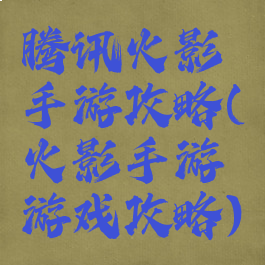 腾讯火影
手游攻略(
火影手游
游戏攻略)